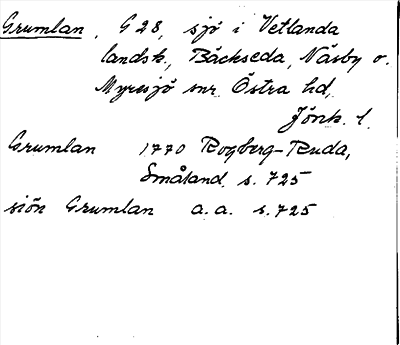 Grumlan, G 28, sjö i Vetlanda
landsk., Bäckseda, Näsby o.
Myresjö snr Östra hd,
Jönk. l.
Grumlan 1770 Rogberg-Ruda,
Småland s. 725
siön Grumlan a.a. s. 725